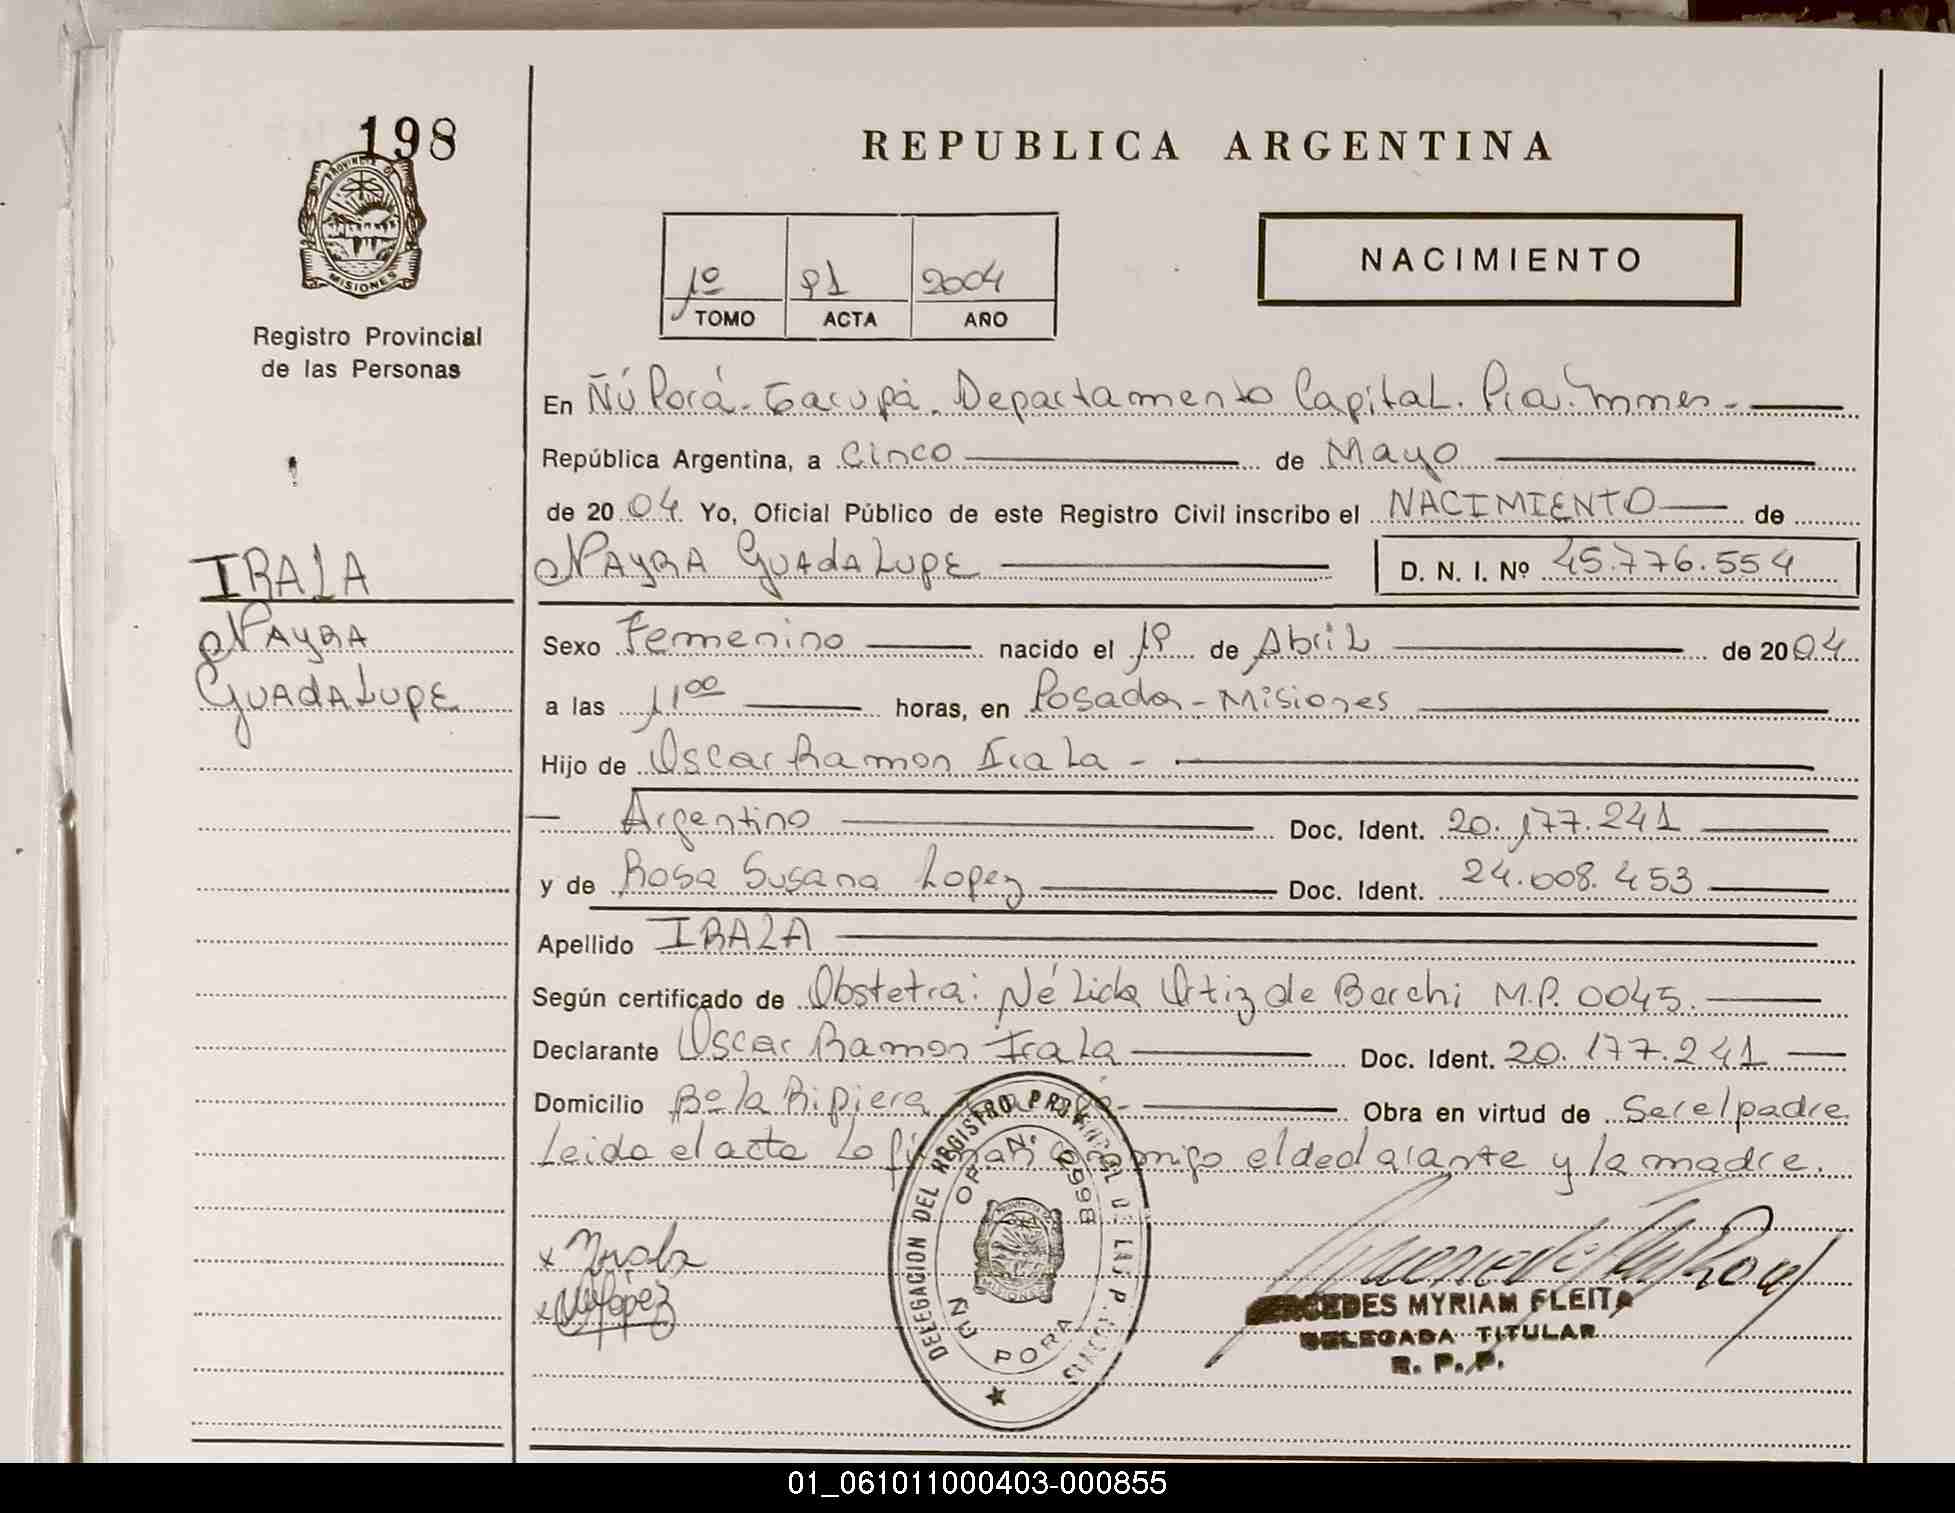 198
PROVINCIA DE
MISIONES
Registro Provincial
de las Personas
IRALA
NAYRA
GUADALUPE
REPUBLICA ARGENTINA
NACIMIENTO
1º 91 2004
TOMO ACTA AÑO
En Ñú Porá - Garupá. Departamento Capital. Pcia. Mnes -
República Argentina, a Cinco de Mayo
de 2004 Yo, Oficial Público de este Registro Civil inscribo el NACIMIENTO de
NAYRA GUADALUPE D. N. I. Nº 45.776.554
Sexo Femenino nacido el de Abril de 2004
a las 11 00 horas, en Posadas - Misiones
Hijo de Oscar Ramon Irala -
Argentino Doc. Ident. 20.177.241
y de Rosa Susana Lopez Doc. Ident. 24.008.453
Apellido IRALA
Según certificado de Obstetra: Nélida Ortiz de Barchi M.P. 0045.
Declarante Oscar Ramon Irala Doc. Ident. 20.177.241
Domicilio Bº la Ripiera Obra en virtud de Ser el padre.
Leida el acta La firman conmigo el declarante y la madre.
x Irala
x López
DELEGACION DEL REGISTRO PROVINCIAL DE LAS P.
OF. Nº 2998
ÑU PORA
MERCEDES MYRIAM FLEITA
DELEGADA TITULAR
R. P. P.
01_061011000403-000855